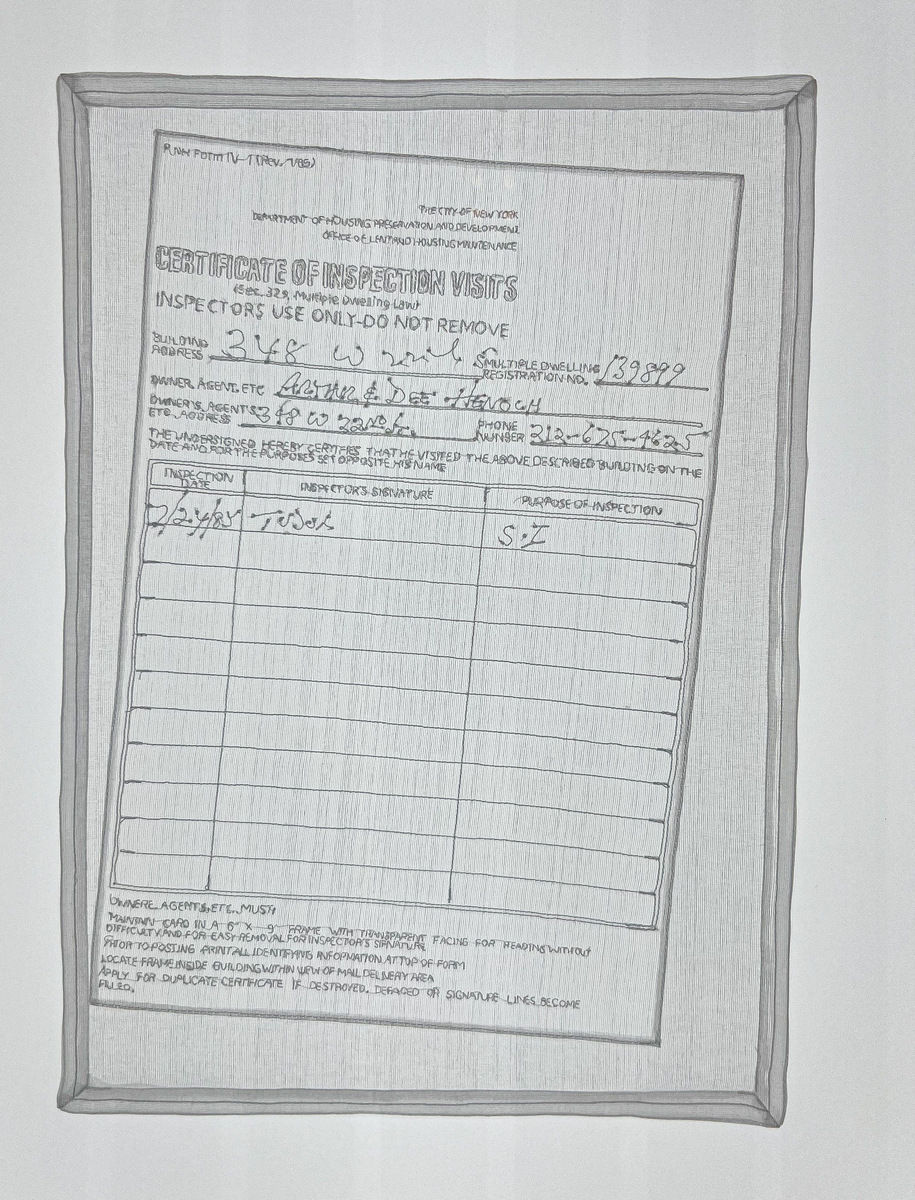 THE CITY OF NEW YORK
DEPARTMENT OF HOUSING PRESERVATION AND DEVELOPMENT
CERTIFICATE OF INSPECTION VISITS
(Sec. 328, Multiple Dwelling Law)
INSPECTORS USE ONLY-DO NOT REMOVE
BUILDING ADDRESS 348 W MULTIPLE DWELLING REGISTRATION NO. 139899
OWNER, AGENT, ETC & DEE HENOCH
OWNER'S, AGENT'S ETC. ADDRESS 348 W 22nd PHONE NUNBER 212-675-4625
THE UNDERSIGNED HEREBY CERTIFIES THAT HE VISITED THE ABOVE DESCRIBED BUILDING ON THE
DATE AND FOR THE PURPOSES SET OPPOSITE HIS NAME
INSPECTION DATE INSPECTOR'S SIGNATURE PURPOSE OF INSPECTION
S.I
OWNERE, AGENTS, ETC. MUST
MAINTAIN CARD IN A 6" X 9" FRAME WITH TRANSPARENT FACING FOR READING WITHOUT
DIFFICULTY AND FOR EASY REMOVAL FOR INSPECTOR'S SIGNATURE
PRIOR TO POSTING PRINT ALL IDENTIFYING INFORMATION AT TOP OF FORM
LOCATE FRAME INSIDE BUILDING WITHIN VIEW OF MAIL DELIVERY AREA
APPLY FOR DUPLICATE CERTIFICATE IF DESTROYED, DEFACED OR SIGNATURE LINES BECOME
FILLED.